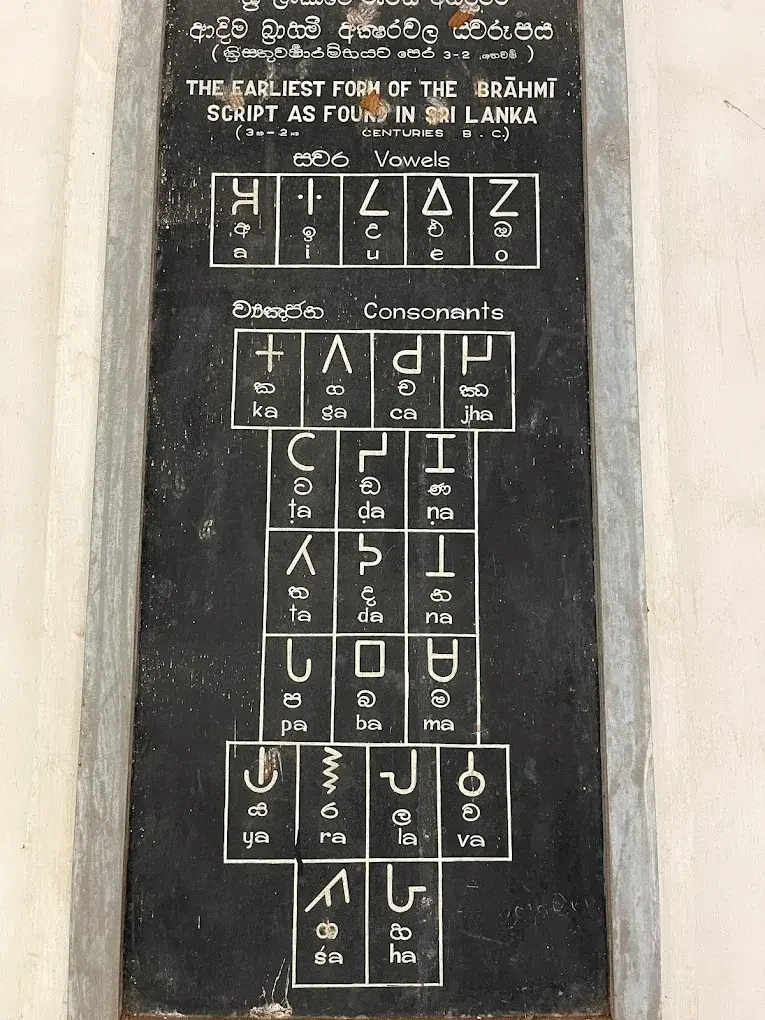 ආදිම බ්‍රාහ්මී අක්ෂරවල ස්වරූපය
( ක්‍රිස්තුවර්ෂාරම්භයට පෙර 3-2 )
THE EARLIEST FORM OF THE BRĀHMĪ
SCRIPT AS FOUND IN SRI LANKA
(3RD-2ND CENTURIES B.C)
ස්වර Vowels
𑀅 𑀇 𑀉 𑀏 𑀑
අ ඉ උ එ ඔ
a i u e o
ව්‍යඤ්ජන Consonants
𑀓 𑀕 𑀘 𑀛
ක ග ච ඣ
ka ga ca jha
𑀝 𑀟 𑀡
ට ඩ ණ
ṭa ḍa ṇa
𑀢 𑀤 𑀦
ත ද න
ta da na
𑀧 𑀩 𑀫
ප බ ම
pa ba ma
𑀬 𑀭 𑀮 𑀯
ය ර ල ව
ya ra la va
𑀰 𑀳
ශ හ
śa ha